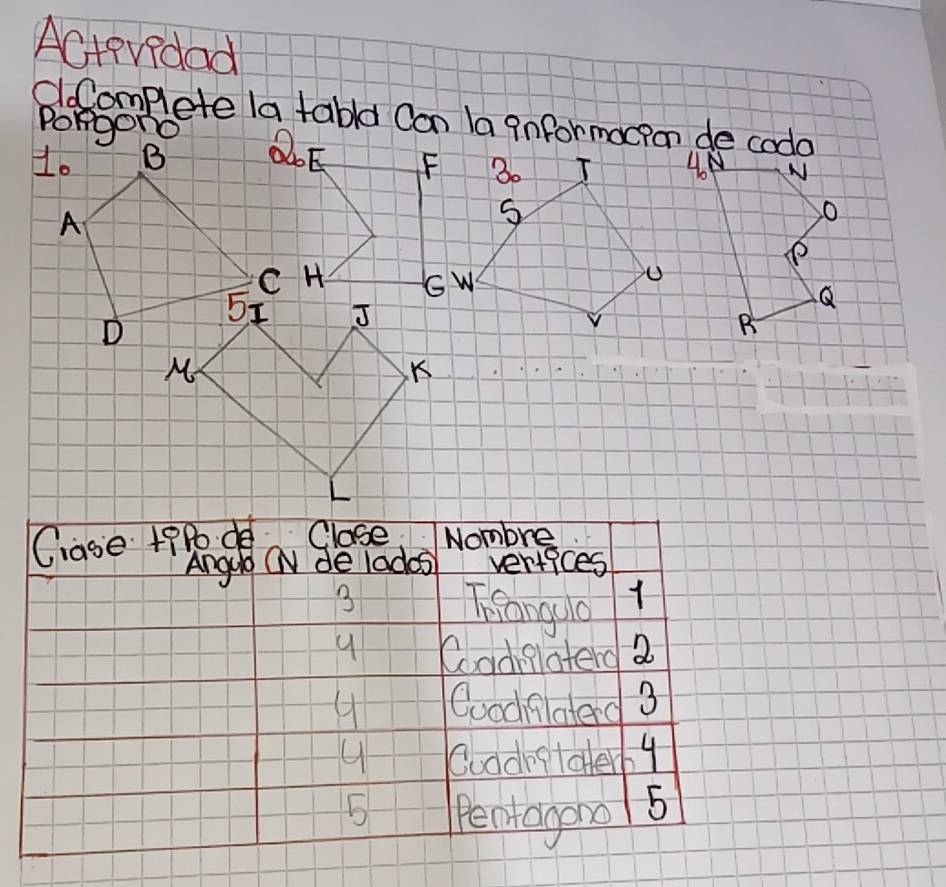 Actividad
1. Complete la tabla Con la informacion de cada
Poligono
1. B 2. E F 3. T 4. N N
A S O
C H G W U P
D 5 I J V R Q
M K
L
Clase tipo de Clase Nombre
Angulo (N de lados) vertices
3 Triangulo 1
4 Cuadrilatero 2
4 Cuadrilatero 3
4 Cuadrilatero 4
5 Pentagono 5